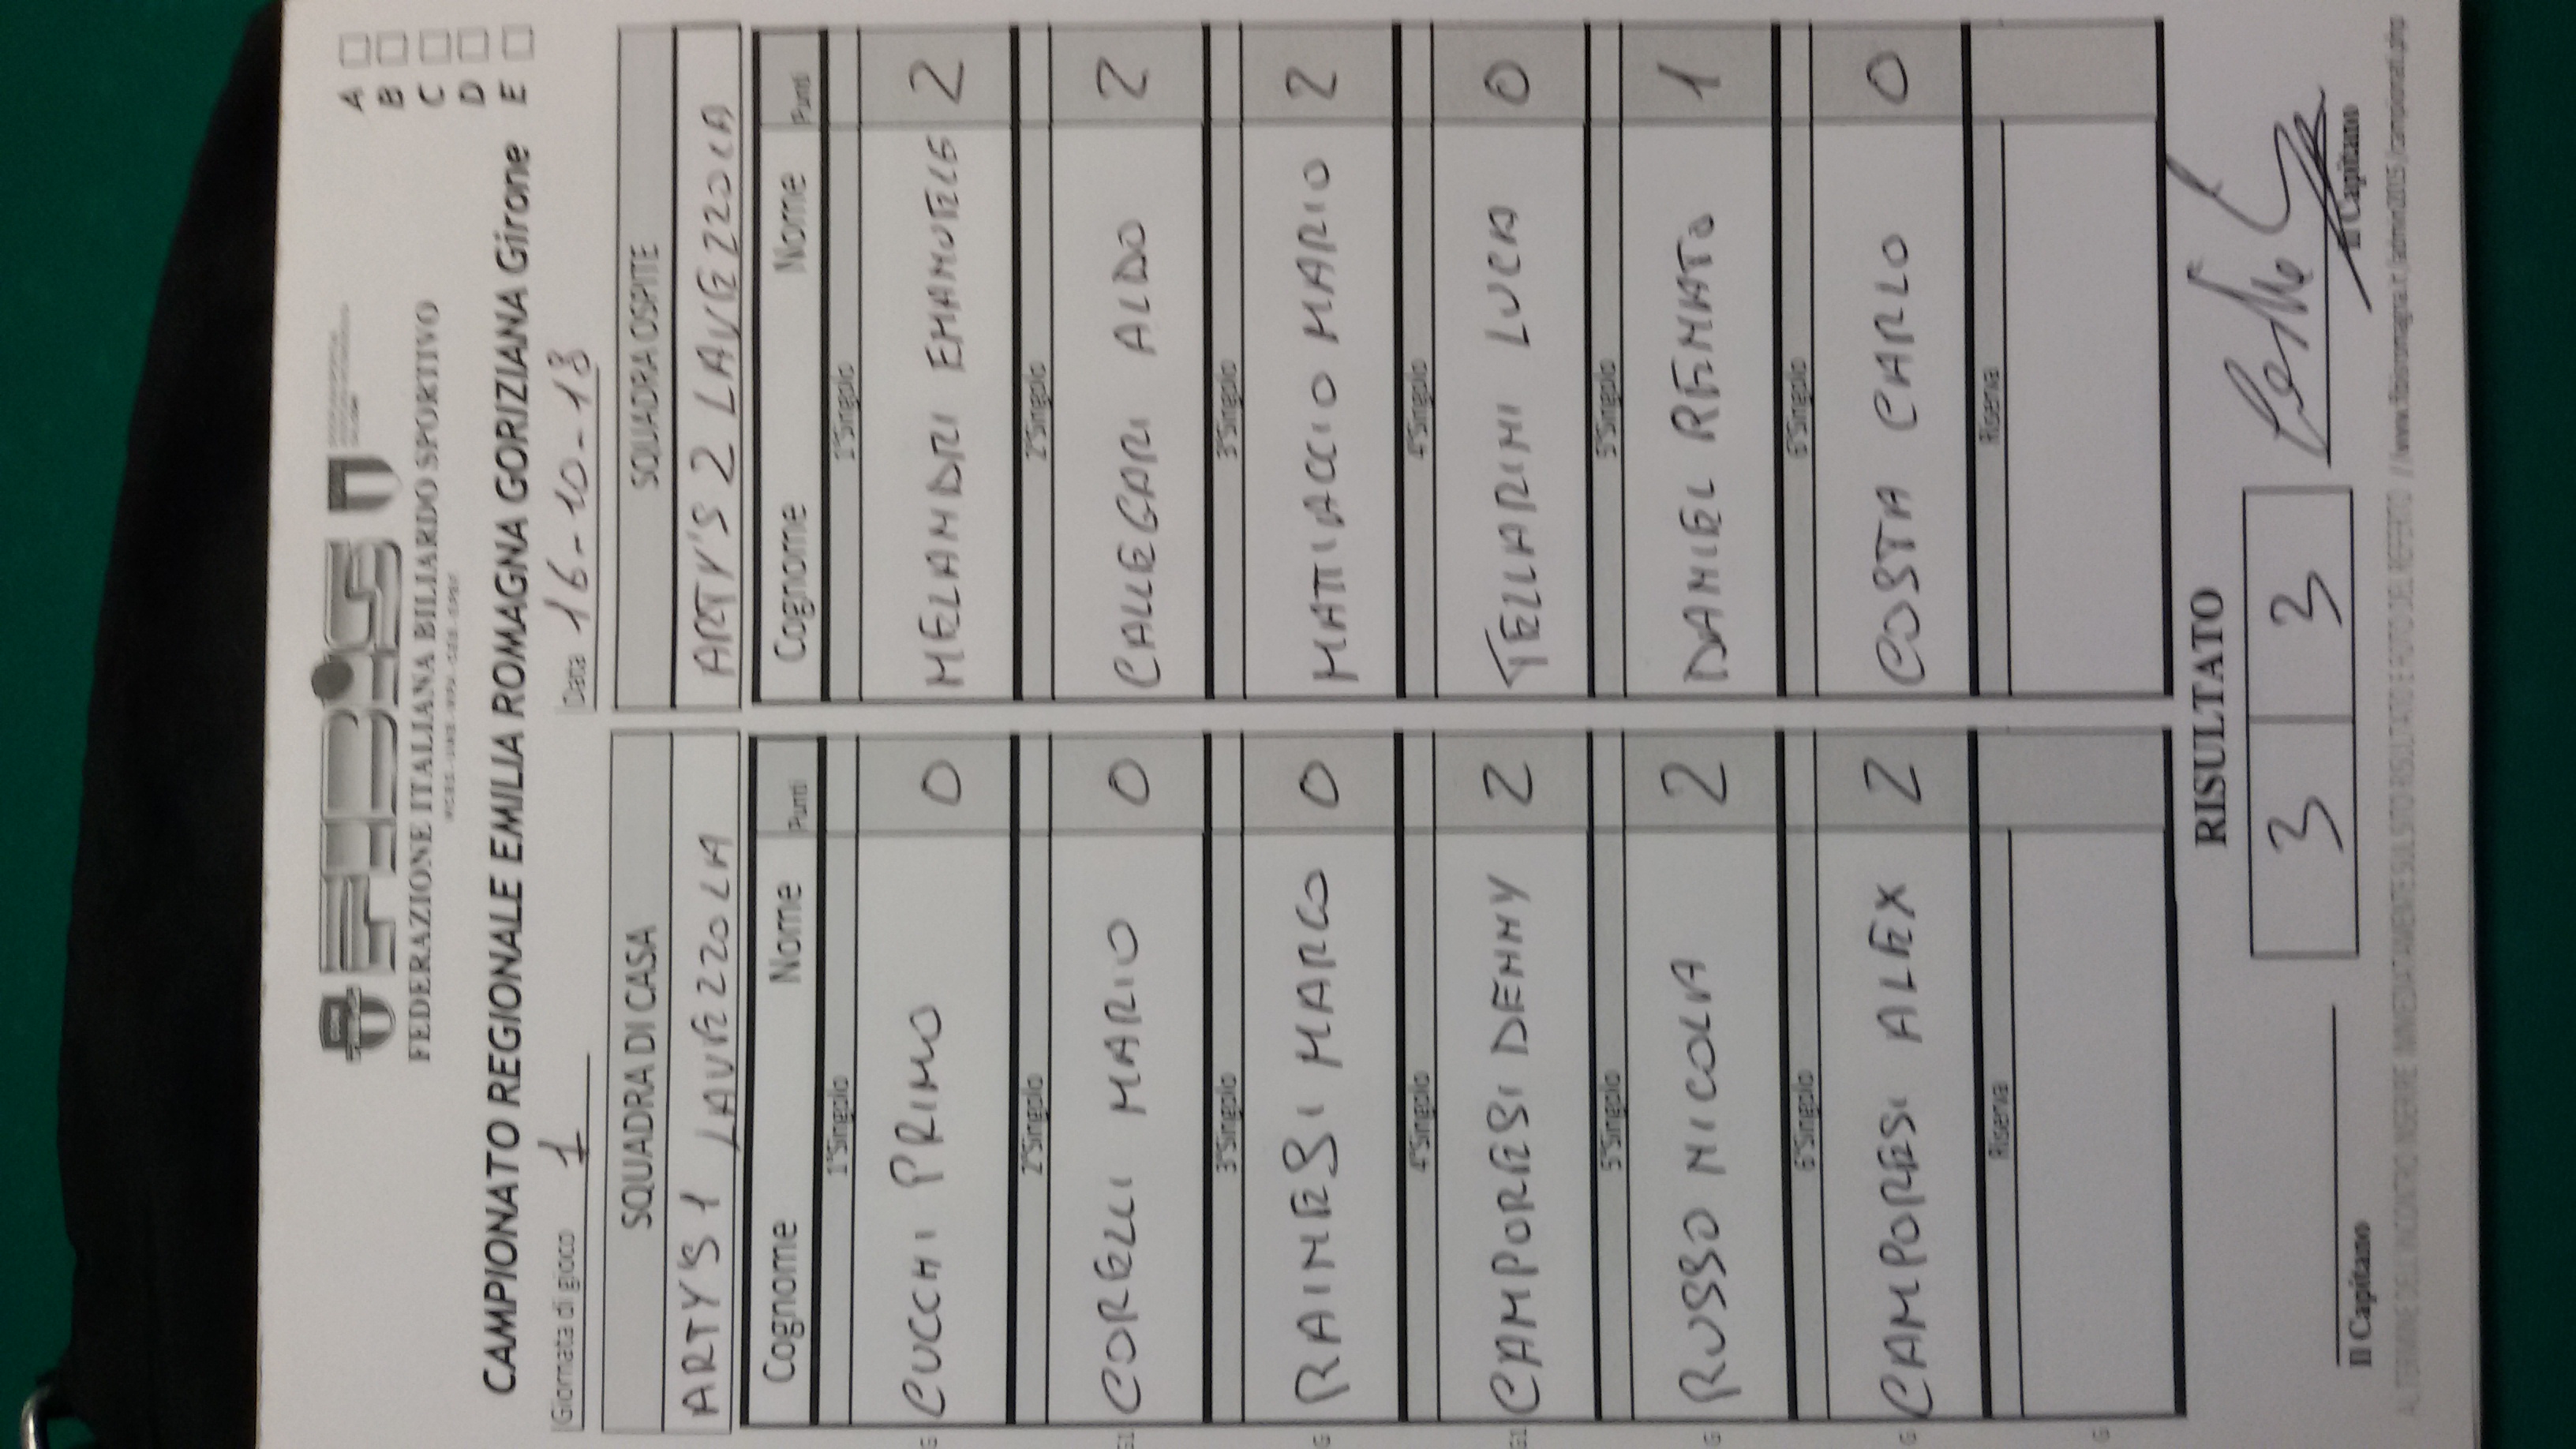 FIBiS
FEDERAZIONE ITALIANA BILIARDO SPORTIVO
CAMPIONATO REGIONALE EMILIA ROMAGNA GORIZIANA Girone
A
B
C
D
E
Giornata di gioco 1
Data 16-10-18
SQUADRA DI CASA
ARTYS 1 LAVEZZOLA
Cognome Nome Punti
1°Singolo
CUCCHI PRIMO 0
2°Singolo
CORELLI MARIO 0
3°Singolo
RAINESI MARCO 0
4°Singolo
CAMPORESI DENNY 2
5°Singolo
RUSSO NICOLA 2
6°Singolo
CAMPORESI ALEX 2
Riserva
SQUADRA OSPITE
ARTY'S 2 LAVEZZOLA
Cognome Nome Punti
1°Singolo
MELANDRI EMANUELE 2
2°Singolo
CALLEGARI ALDO 2
3°Singolo
MATTIACCIO MARIO 2
4°Singolo
TELLARINI LUCA 0
5°Singolo
DANIEL RENATO 1
6°Singolo
COSTA CARLO 0
Riserva
G
G1
G
G1
G
G
G
RISULTATO
3 3
Il Capitano
Il Capitano